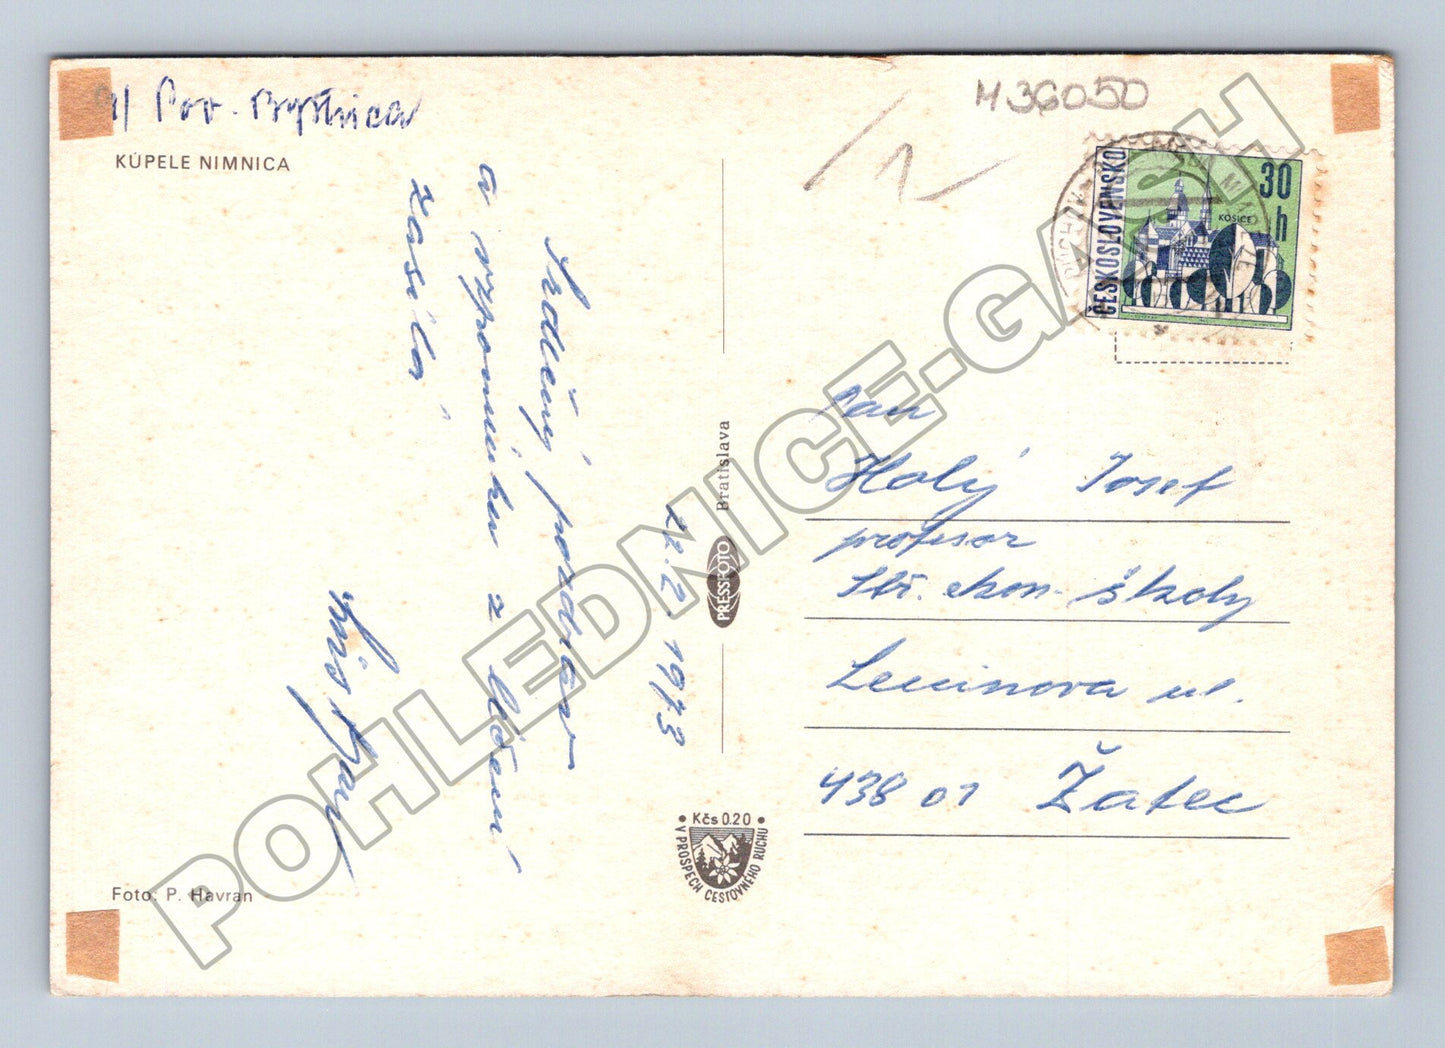 Pov. Bystrica
KÚPELE NIMNICA
Srdečný pozdrav
a vzpomínku z léčení
zasílá
22. 2. 1973
Foto: P. Havran
Bratislava
PRESSFOTO
• Kčs 0.20 •
V PROSPECH CESTOVNÉHO RUCHU
M36050
1
ČESKOSLOVENSKO
30
h
KOŠICE
PÚCHOV
Pan
Holý Josef
profesor
Stř. ekon. školy
Leninova ul.
438 01 Žatec
POHLEDNICE-GALASH